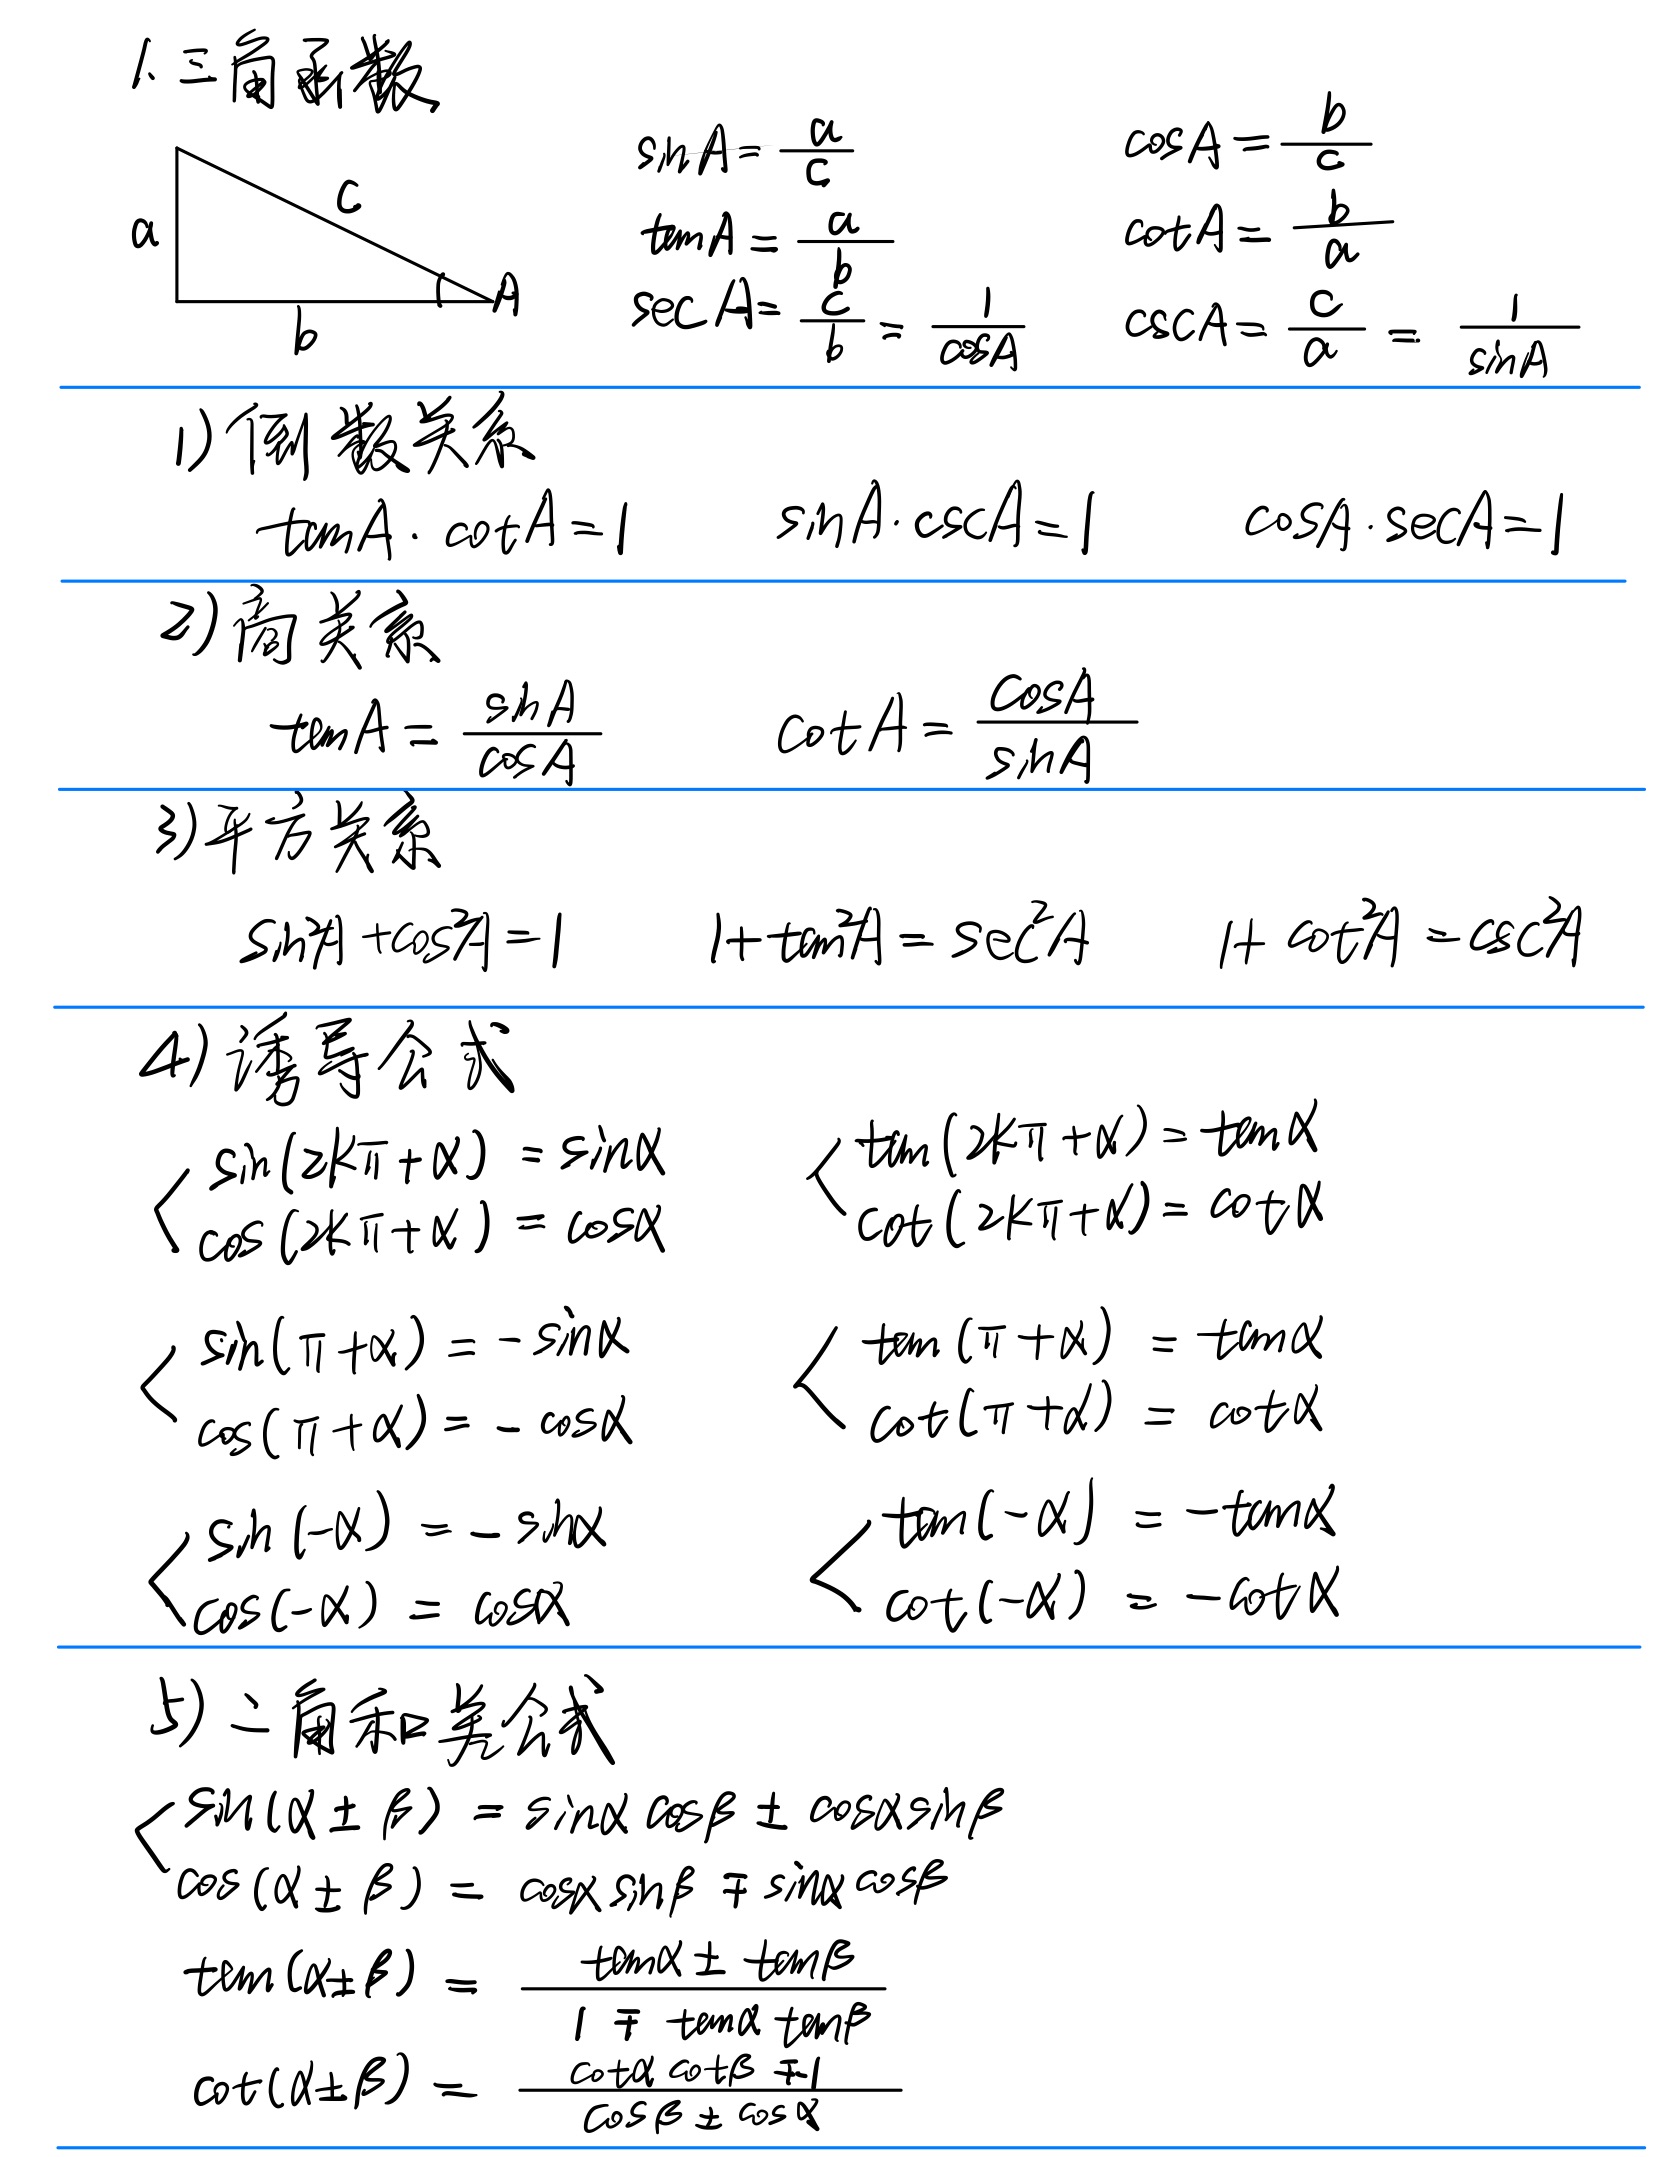 1. 三角函数
sinA = a/c cosA = b/c
a c b A
tanA = a/b cotA = b/a
secA = c/b = 1/cosA cscA = c/a = 1/sinA
1) 倒数关系
tanA · cotA = 1 sinA · cscA = 1 cosA · secA = 1
2) 商关系
tanA = sinA/cosA cotA = cosA/sinA
3) 平方关系
sin²A + cos²A = 1 1 + tan²A = sec²A 1 + cot²A = csc²A
4) 诱导公式
sin(2kπ + α) = sinα tan(2kπ + α) = tanα
cos(2kπ + α) = cosα cot(2kπ + α) = cotα
sin(π + α) = - sinα tan(π + α) = tanα
cos(π + α) = - cosα cot(π + α) = cotα
sin(-α) = - sinα tan(-α) = -tanα
cos(-α) = cosα cot(-α) = -cotα
5) 二角和差公式
sin(α ± β) = sinα cosβ ± cosα sinβ
cos(α ± β) = cosα sinβ ∓ sinα cosβ
tan(α ± β) = (tanα ± tanβ)/(1 ∓ tanα tanβ)
cot(α ± β) = (cotα cotβ ∓ 1)/(cosβ ± cosα)